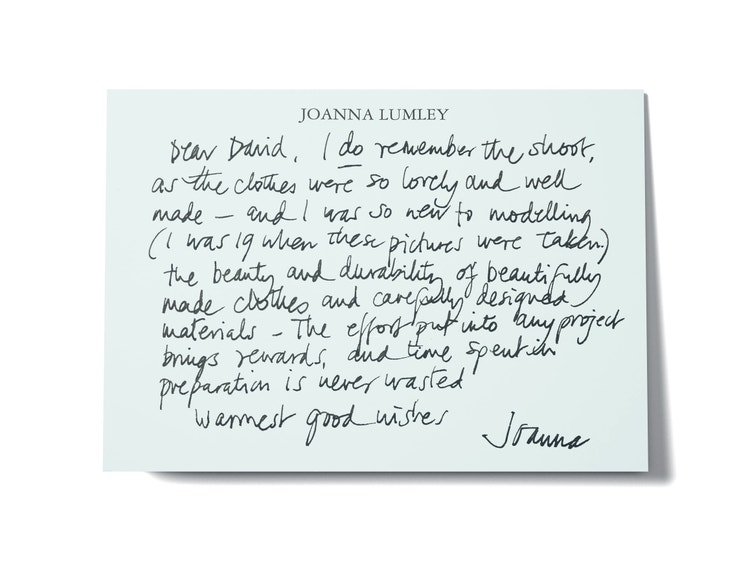 JOANNA LUMLEY
Dear David, I do remember the shoot,
as the clothes were so lovely and well
made – and I was so new to modelling
(I was 19 when these pictures were taken.)
The beauty and durability of beautifully
made clothes and carefully designed
materials – The effort put into any project
brings rewards, and time spent in
preparation is never wasted
Warmest good wishes
Joanna